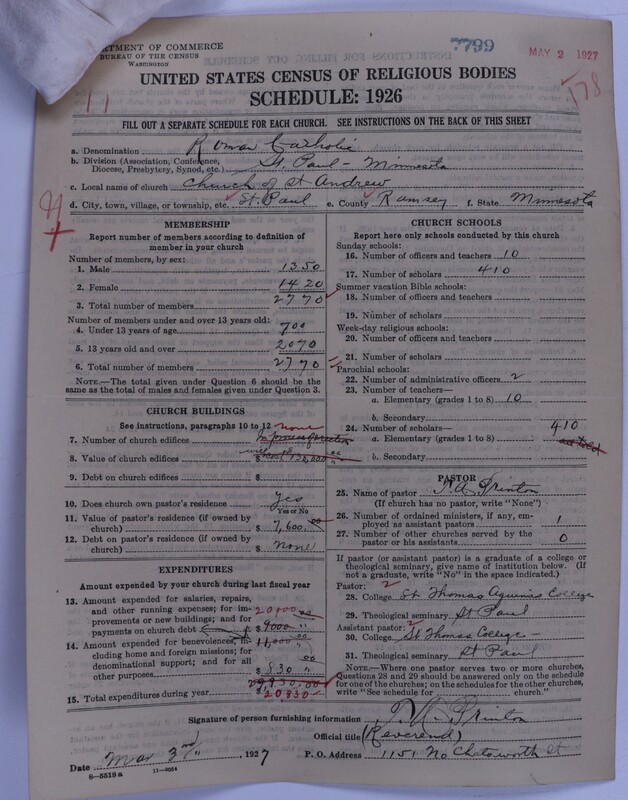 DEPARTMENT OF COMMERCE
BUREAU OF THE CENSUS
WASHINGTON
7799
MAY 2 1927
178
UNITED STATES CENSUS OF RELIGIOUS BODIES
SCHEDULE: 1926
FILL OUT A SEPARATE SCHEDULE FOR EACH CHURCH. SEE INSTRUCTIONS ON THE BACK OF THIS SHEET
a. Denomination Roman Catholic
b. Division (Association, Conference, Diocese, Presbytery, Synod, etc.) St. Paul - Minnesota
c. Local name of church Church of St Andrew
d. City, town, village, or township, etc. St. Paul e. County Ramsey f. State Minnesota
MEMBERSHIP
Report number of members according to definition of member in your church
Number of members, by sex:
1. Male 1350
2. Female 1420
3. Total number of members 2770
Number of members under and over 13 years old:
4. Under 13 years of age 700
5. 13 years old and over 2070
6. Total number of members 2770
NOTE.—The total given under Question 6 should be the same as the total of males and females given under Question 3.
CHURCH BUILDINGS
See instructions, paragraphs 10 to 12 none
7. Number of church edifices
8. Value of church edifices $
9. Debt on church edifices $
10. Does church own pastor's residence yes
Yes or No
11. Value of pastor's residence (if owned by church) $ 7,600.00
12. Debt on pastor's residence (if owned by church) $ none
EXPENDITURES
Amount expended by your church during last fiscal year
13. Amount expended for salaries, repairs, and other running expenses; for improvements or new buildings; and for payments on church debt 20,000.00
$ 9000 "
14. Amount expended for benevolences, including home and foreign missions; for denominational support; and for all other purposes 11,000 "
$ 830 "
15. Total expenditures during year $ 20,830
CHURCH SCHOOLS
Report here only schools conducted by this church
Sunday schools:
16. Number of officers and teachers 10
17. Number of scholars 410
Summer vacation Bible schools:
18. Number of officers and teachers
19. Number of scholars
Week-day religious schools:
20. Number of officers and teachers
21. Number of scholars
Parochial schools:
22. Number of administrative officers 2
23. Number of teachers—
a. Elementary (grades 1 to 8) 10
b. Secondary
24. Number of scholars—
a. Elementary (grades 1 to 8) 410
b. Secondary
PASTOR
25. Name of pastor T. A. Printon
(If church has no pastor, write "None")
26. Number of ordained ministers, if any, employed as assistant pastors 1
27. Number of other churches served by the pastor or his assistants 0
If pastor (or assistant pastor) is a graduate of a college or theological seminary, give name of institution below. (If not a graduate, write "No" in the space indicated.)
Pastor: 2
28. College St Thomas Aquinas College
29. Theological seminary St Paul
Assistant pastor:
30. College St Thomas College -
31. Theological seminary St Paul
NOTE.—Where one pastor serves two or more churches, Questions 28 and 29 should be answered only on the schedule for one of the churches; on the schedules for the other churches, write "See schedule for church."
Signature of person furnishing information T. A. Printon
Official title (Reverend)
Date Mar 3rd, 1927 P. O. Address 1151 No Chatsworth St
8—5518 a 11—9054